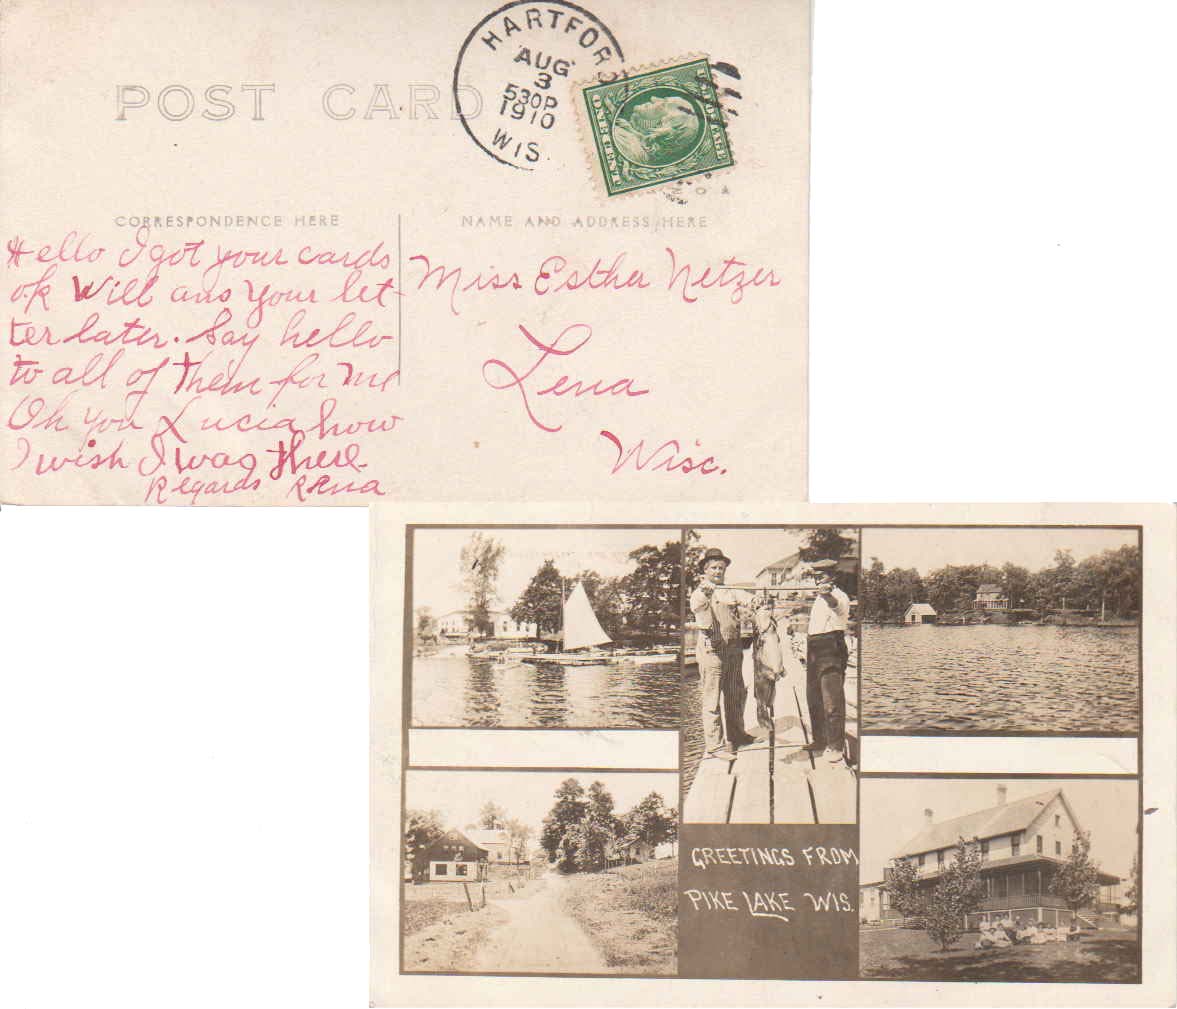 POST CARD
HARTFORD
AUG
3
530P
1910
WIS.
ONE CENT
CORRESPONDENCE HERE
NAME AND ADDRESS HERE
Hello I got your cards
o.k Will ans Your let-
ter later. Say hello
to all of them for me
Oh You Lucia how
I wish I was there.
Regards Rena
Miss Esther Netzer
Lena
Wisc.
GREETINGS FROM
PIKE LAKE WIS.